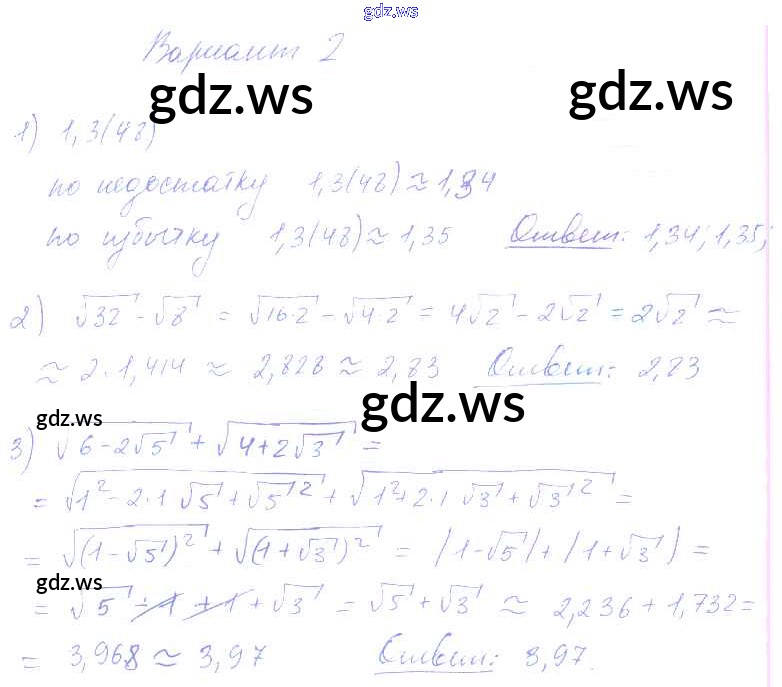 gdz.ws
Вариант 2
gdz.ws gdz.ws
1) 1,3(48)
по недостатку 1,3(48) ≈ 1,34
по избытку 1,3(48) ≈ 1,35 Ответ: 1,34; 1,35;
2) √32 - √8 = √16·2 - √4·2 = 4√2 - 2√2 = 2√2 ≈
≈ 2·1,414 ≈ 2,828 ≈ 2,83 Ответ: 2,83
gdz.ws
gdz.ws
3) √(6-2√5) + √(4+2√3) =
= √(1² - 2·1 √5 + √5²) + √(1² + 2·1 √3 + √3²) =
= √(1-√5)² + √(1+√3)² = |1-√5| + |1+√3| =
gdz.ws
= √5 - 1 + 1 + √3 = √5 + √3 ≈ 2,236 + 1,732 =
= 3,968 ≈ 3,97 Ответ: 3,97.